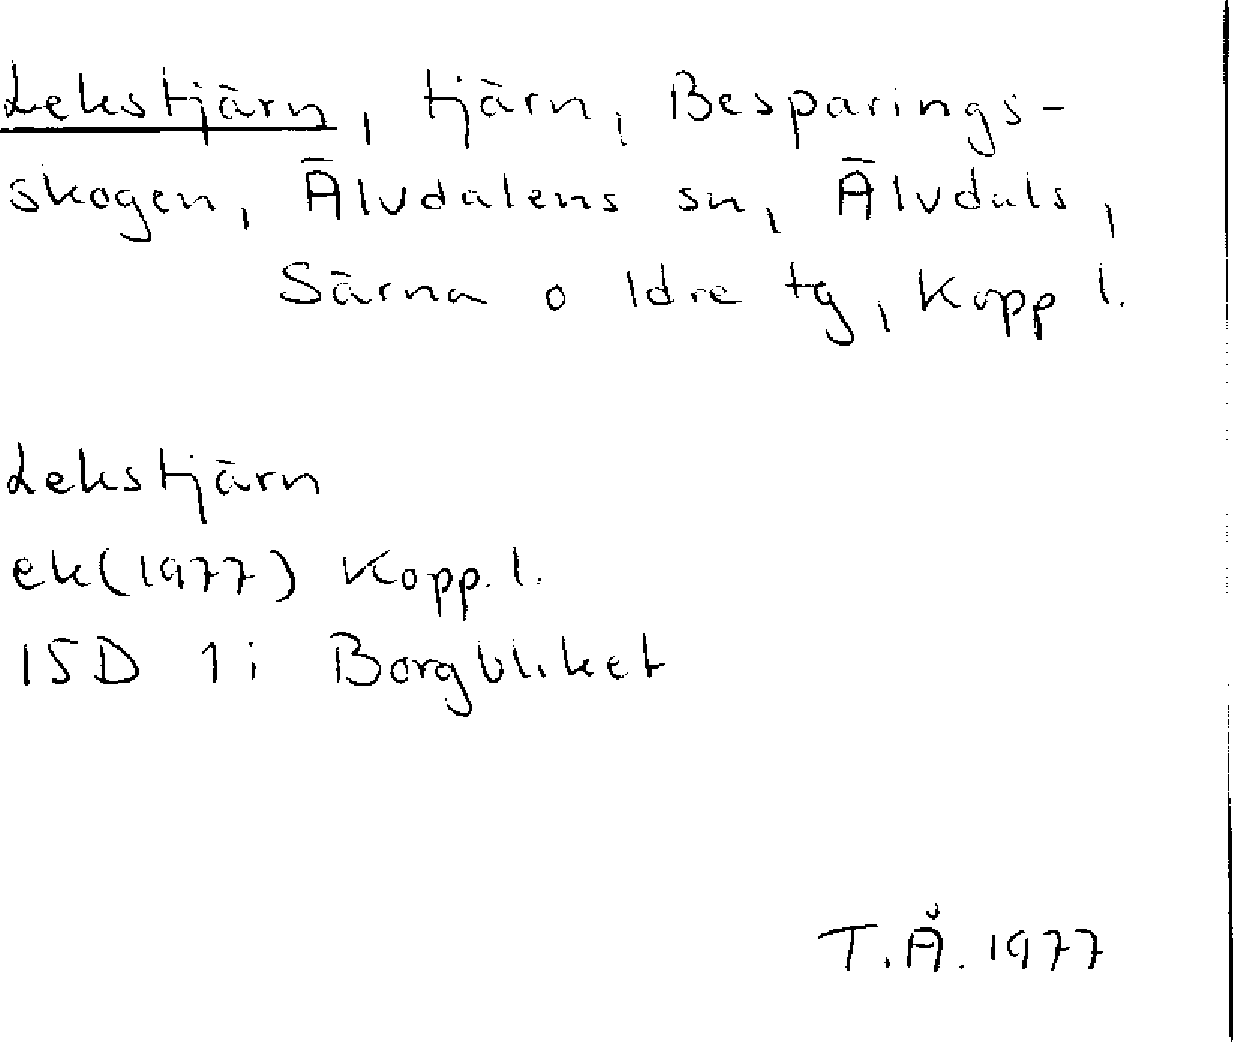 Lekstjärn, tjärn, Besparings-
skogen, Älvdalens sn, Älvdals,
Särna o Idre tg, Kopp l.
Lekstjärn
ek(1977) Kopp. l.
15D 1i Borgbliket
T.Å. 1977